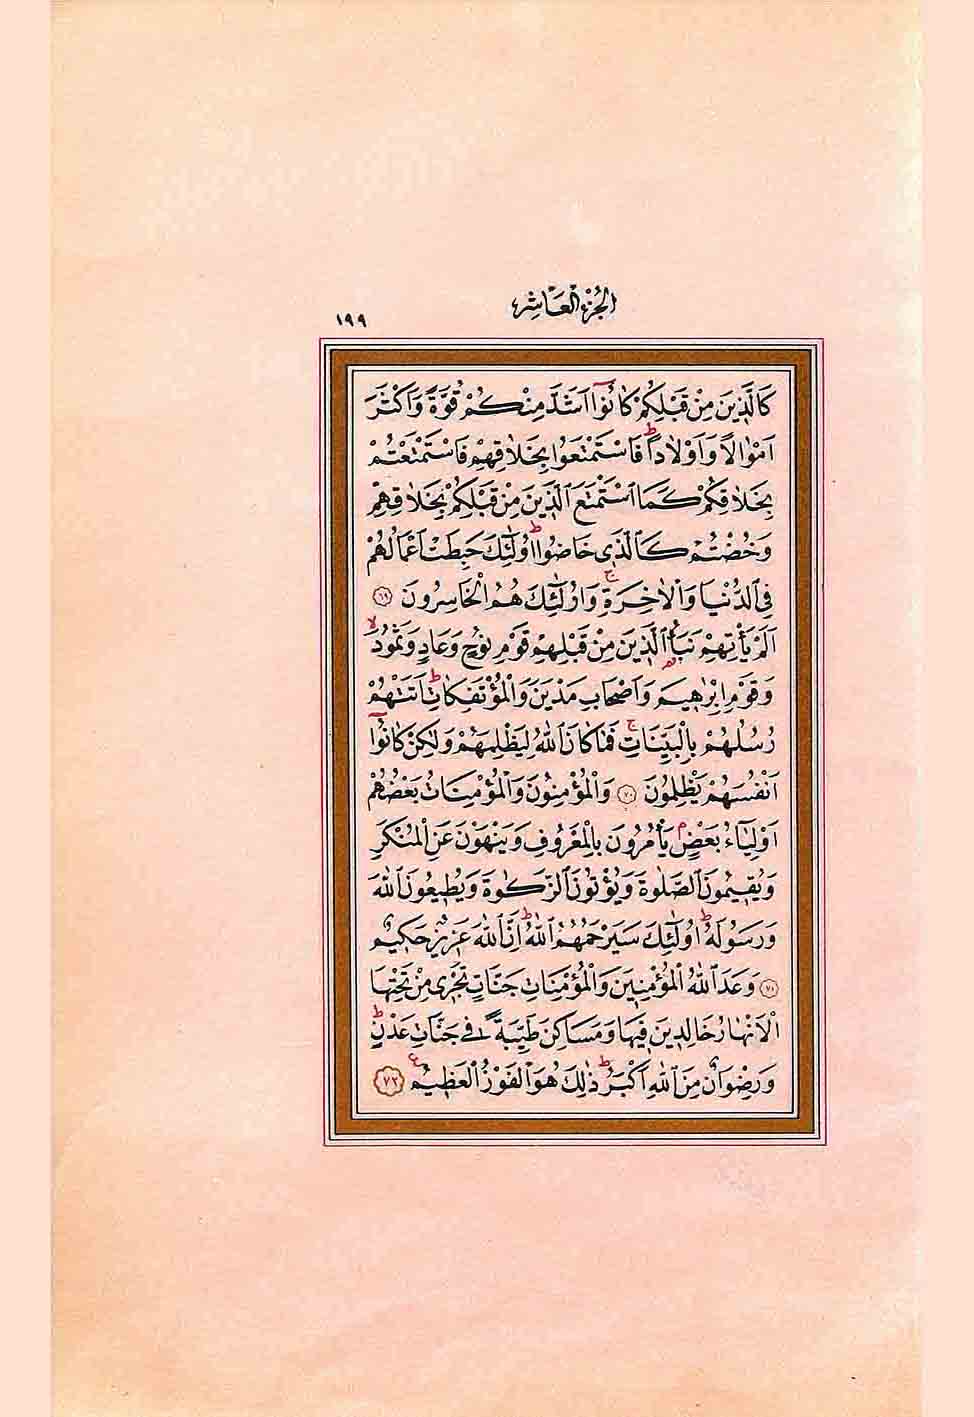 الجُزْءُ الْعَاشِرُ
١٩٩
كَالَّذِينَ مِنْ قَبْلِكُمْ كَانُوٓا اَشَدَّ مِنْكُمْ قُوَّةً وَاَكْثَرَ
اَمْوَالًا وَاَوْلَادًاۜ فَاسْتَمْتَعُوا بِخَلَاقِهِمْ فَاسْتَمْتَعْتُمْ
بِخَلَاقِكُمْ كَمَا اسْتَمْتَعَ الَّذِينَ مِنْ قَبْلِكُمْ بِخَلَاقِهِمْ
وَخُضْتُمْ كَالَّذِي خَاضُواۜ اُولٰٓئِكَ حَبِطَتْ اَعْمَالُهُمْ
فِي الدُّنْيَا وَالْاٰخِرَةِۚ وَاُولٰٓئِكَ هُمُ الْخَاسِرُونَ ﴿٦٩﴾
اَلَمْ يَأْتِهِمْ نَبَأُ الَّذِينَ مِنْ قَبْلِهِمْ قَوْمِ نُوحٍ وَعَادٍ وَثَمُودَۙ
وَقَوْمِ اِبْرٰهِيمَ وَاَصْحَابِ مَدْيَنَ وَالْمُؤْتَفِكَاتِۜ اَتَتْهُمْ
رُسُلُهُمْ بِالْبَيِّنَاتِۚ فَمَا كَانَ اللّٰهُ لِيَظْلِمَهُمْ وَلٰكِنْ كَانُوٓا
اَنْفُسَهُمْ يَظْلِمُونَ ﴿٧٠﴾ وَالْمُؤْمِنُونَ وَالْمُؤْمِنَاتُ بَعْضُهُمْ
اَوْلِيَٓاءُ بَعْضٍۢ يَأْمُرُونَ بِالْمَعْرُوفِ وَيَنْهَوْنَ عَنِ الْمُنْكَرِ
وَيُقِيمُونَ الصَّلٰوةَ وَيُؤْتُونَ الزَّكٰوةَ وَيُطِيعُونَ اللّٰهَ
وَرَسُولَهُۜ اُولٰٓئِكَ سَيَرْحَمُهُمُ اللّٰهُۜ اِنَّ اللّٰهَ عَزِيزٌ حَكِيمٌ
﴿٧١﴾ وَعَدَ اللّٰهُ الْمُؤْمِنِينَ وَالْمُؤْمِنَاتِ جَنَّاتٍ تَجْرِي مِنْ تَحْتِهَا
الْاَنْهَارُ خَالِدِينَ فِيهَا وَمَسَاكِنَ طَيِّبَةً فِي جَنَّاتِ عَدْنٍۜ
وَرِضْوَانٌ مِنَ اللّٰهِ اَكْبَرُۜ ذٰلِكَ هُوَ الْفَوْزُ الْعَظِيمُ ﴿٧٢﴾